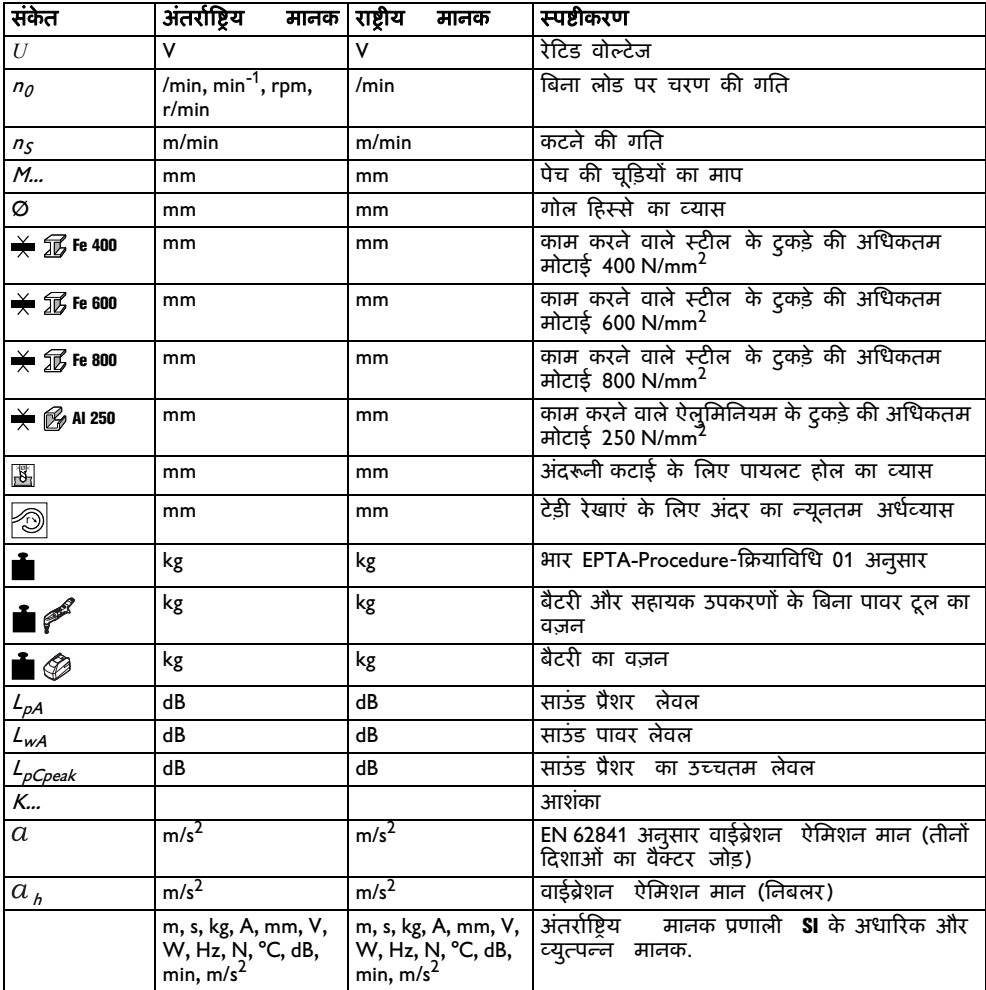 संकेत अंतर्राष्ट्रिय मानक राष्ट्रीय मानक स्पष्टीकरण
U V V रेटिड वोल्टेज
n0 /min, min-1, rpm, /min बिना लोड पर चरण की गति
r/min
nS m/min m/min कटने की गति
M... mm mm पेच की चूड़ियों का माप
Ø mm mm गोल हिस्से का व्यास
Fe 400 mm mm काम करने वाले स्टील के टुकड़े की अधिकतम
मोटाई 400 N/mm2
Fe 600 mm mm काम करने वाले स्टील के टुकड़े की अधिकतम
मोटाई 600 N/mm2
Fe 800 mm mm काम करने वाले स्टील के टुकड़े की अधिकतम
मोटाई 800 N/mm2
Al 250 mm mm काम करने वाले ऐलुमिनियम के टुकड़े की अधिकतम
मोटाई 250 N/mm2
mm mm अंदरूनी कटाई के लिए पायलट होल का व्यास
mm mm टेड़ी रेखाएं के लिए अंदर का न्यूनतम अर्धव्यास
kg kg भार EPTA-Procedure-क्रियाविधि 01 अनुसार
kg kg बैटरी और सहायक उपकरणों के बिना पावर टूल का
वज़न
kg kg बैटरी का वज़न
LpA dB dB साउंड प्रैशर लेवल
LwA dB dB साउंड पावर लेवल
LpCpeak dB dB साउंड प्रैशर का उच्चतम लेवल
K... आशंका
a m/s2 m/s2 EN 62841 अनुसार वाईब्रेशन ऐमिशन मान (तीनों
दिशाओं का वैक्टर जोड़)
a h m/s2 m/s2 वाईब्रेशन ऐमिशन मान (निबलर)
m, s, kg, A, mm, V, m, s, kg, A, mm, V, अंतर्राष्ट्रिय मानक प्रणाली SI के अधारिक और
W, Hz, N, °C, dB, W, Hz, N, °C, dB, व्युत्पन्न मानक.
min, m/s2 min, m/s2